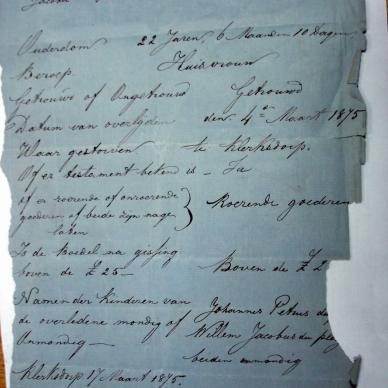 Ouderdom 22 Jaren 6 Maanden 10 Dagen
Beroep Huisvrouw
Getrouwd of Ongetrouwd Getrouwd
Datum van overlyden den 4 de Maart 1875
Waar gestorven te Klerksdorp.
Of er testament bekend is - Ja
of er roerende of onroerende
goederen of beide zijn nage
laten } Roerende goederen
Is de Boedel na gissing
boven de £25 - Boven de £2
Namen der kinderen van Johannes Petrus du
de overledene mondig of Willem Jacobus du
Onmondig - beiden onmondig
Klerksdorp 17 Maart 1875.